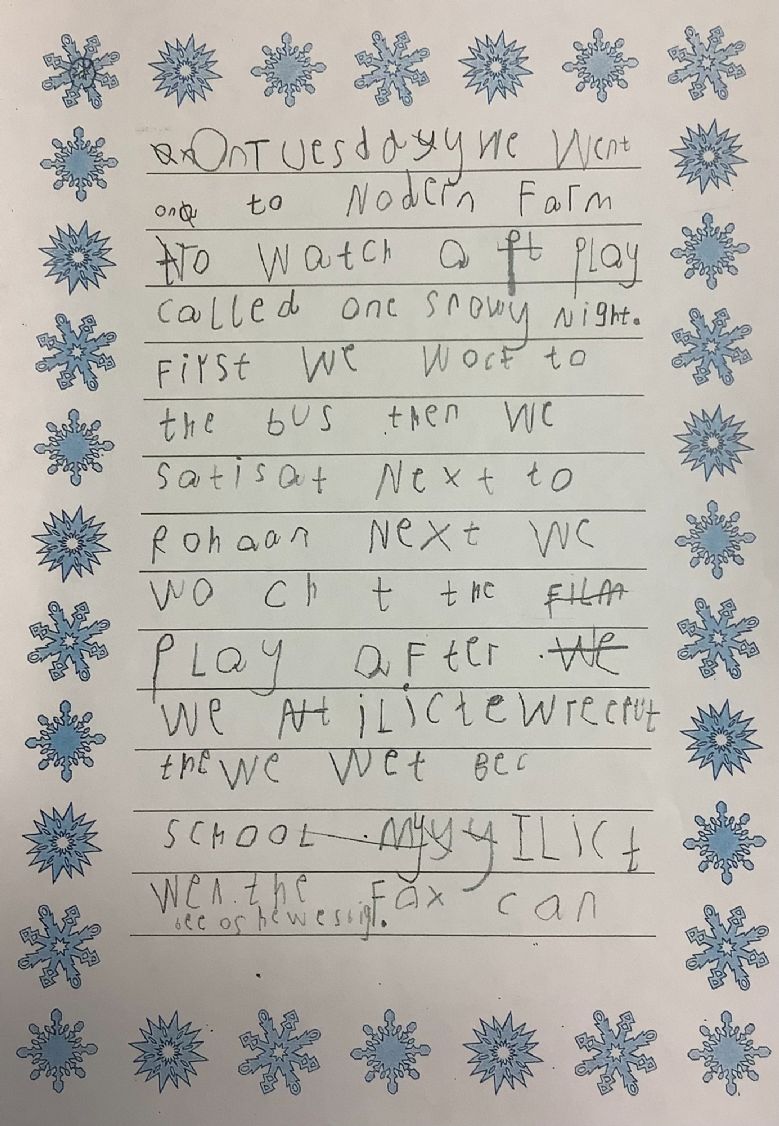 On Tuesdayy we went
to Nodern Farm
to watch a play
called one snowy Night.
First we worct to
the bus then we
satisat Next to
Rohaan Next we
wo ch t the FILM
play after we
we At iLicte wrecrut
the we wet Bec
SCHOOL Myyy ILict
wen.the Fax can
bec os he we s